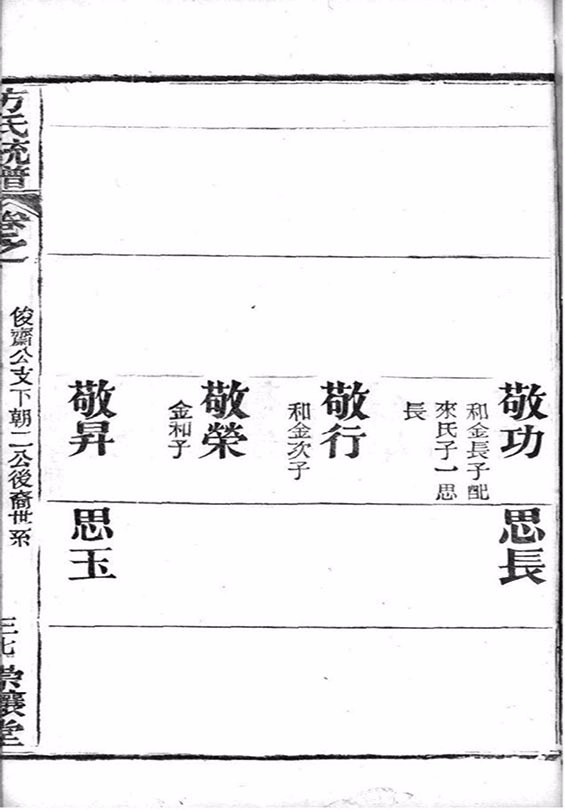 敬功
和金長子配
來氏子一思
長
敬行
和金次子
敬榮
金和子
敬昇
思長
思玉
方氏統譜
卷之一
俊齋公支下朝二公後裔世系
三七